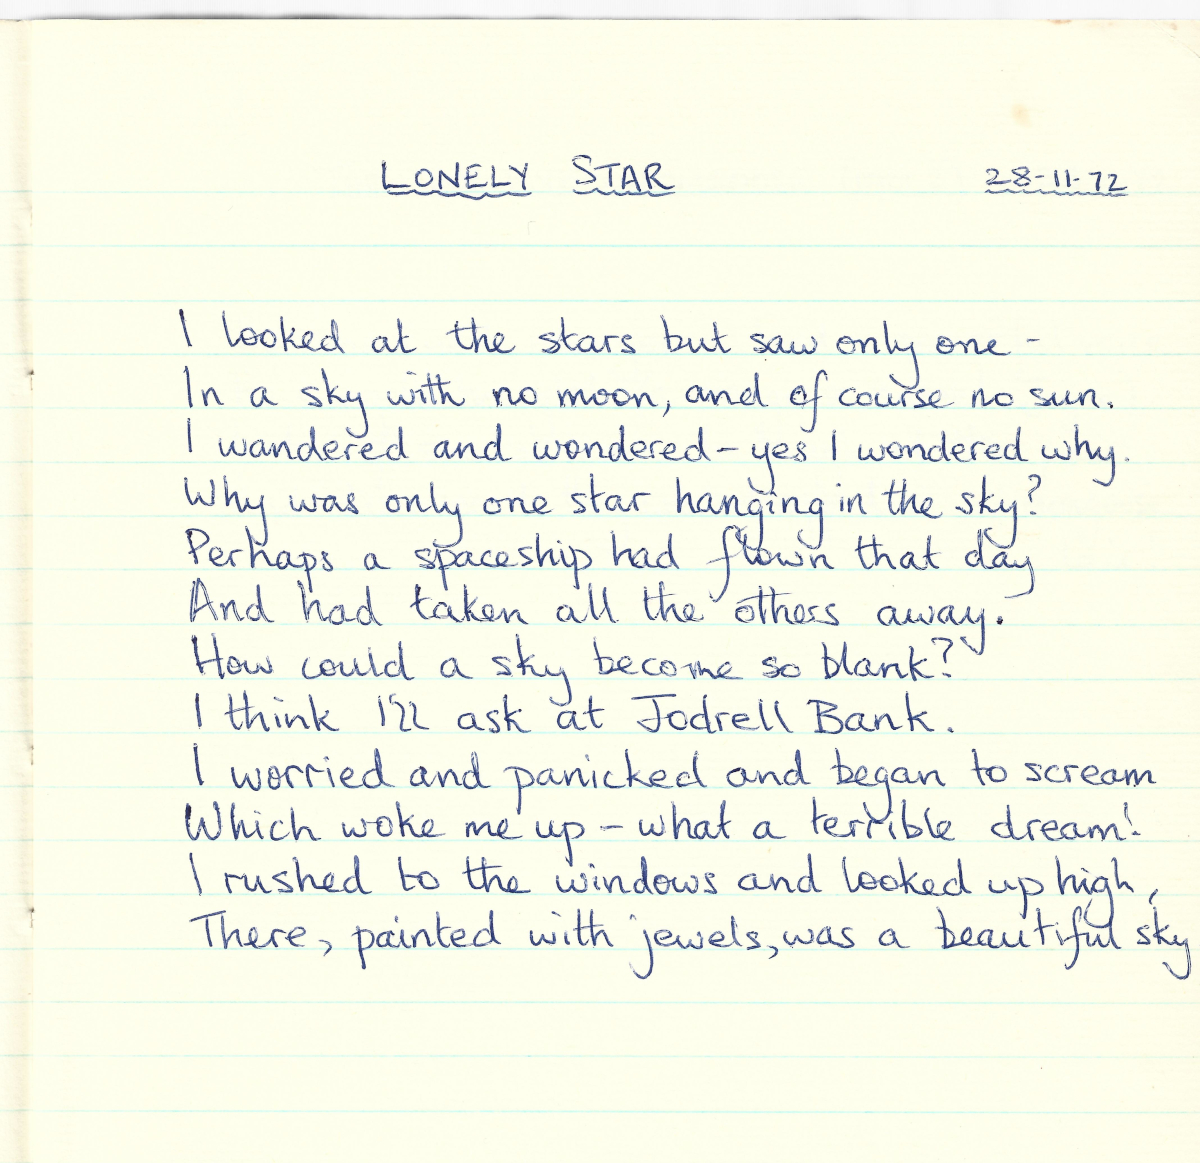 LONELY STAR 28-11-72
I looked at the stars but saw only one -
In a sky with no moon, and of course no sun.
I wandered and wondered - yes I wondered why.
Why was only one star hanging in the sky?
Perhaps a spaceship had flown that day
And had taken all the others away.
How could a sky become so blank?
I think I'll ask at Jodrell Bank.
I worried and panicked and began to scream
Which woke me up - what a terrible dream!
I rushed to the windows and looked up high,
There, painted with jewels, was a beautiful sky